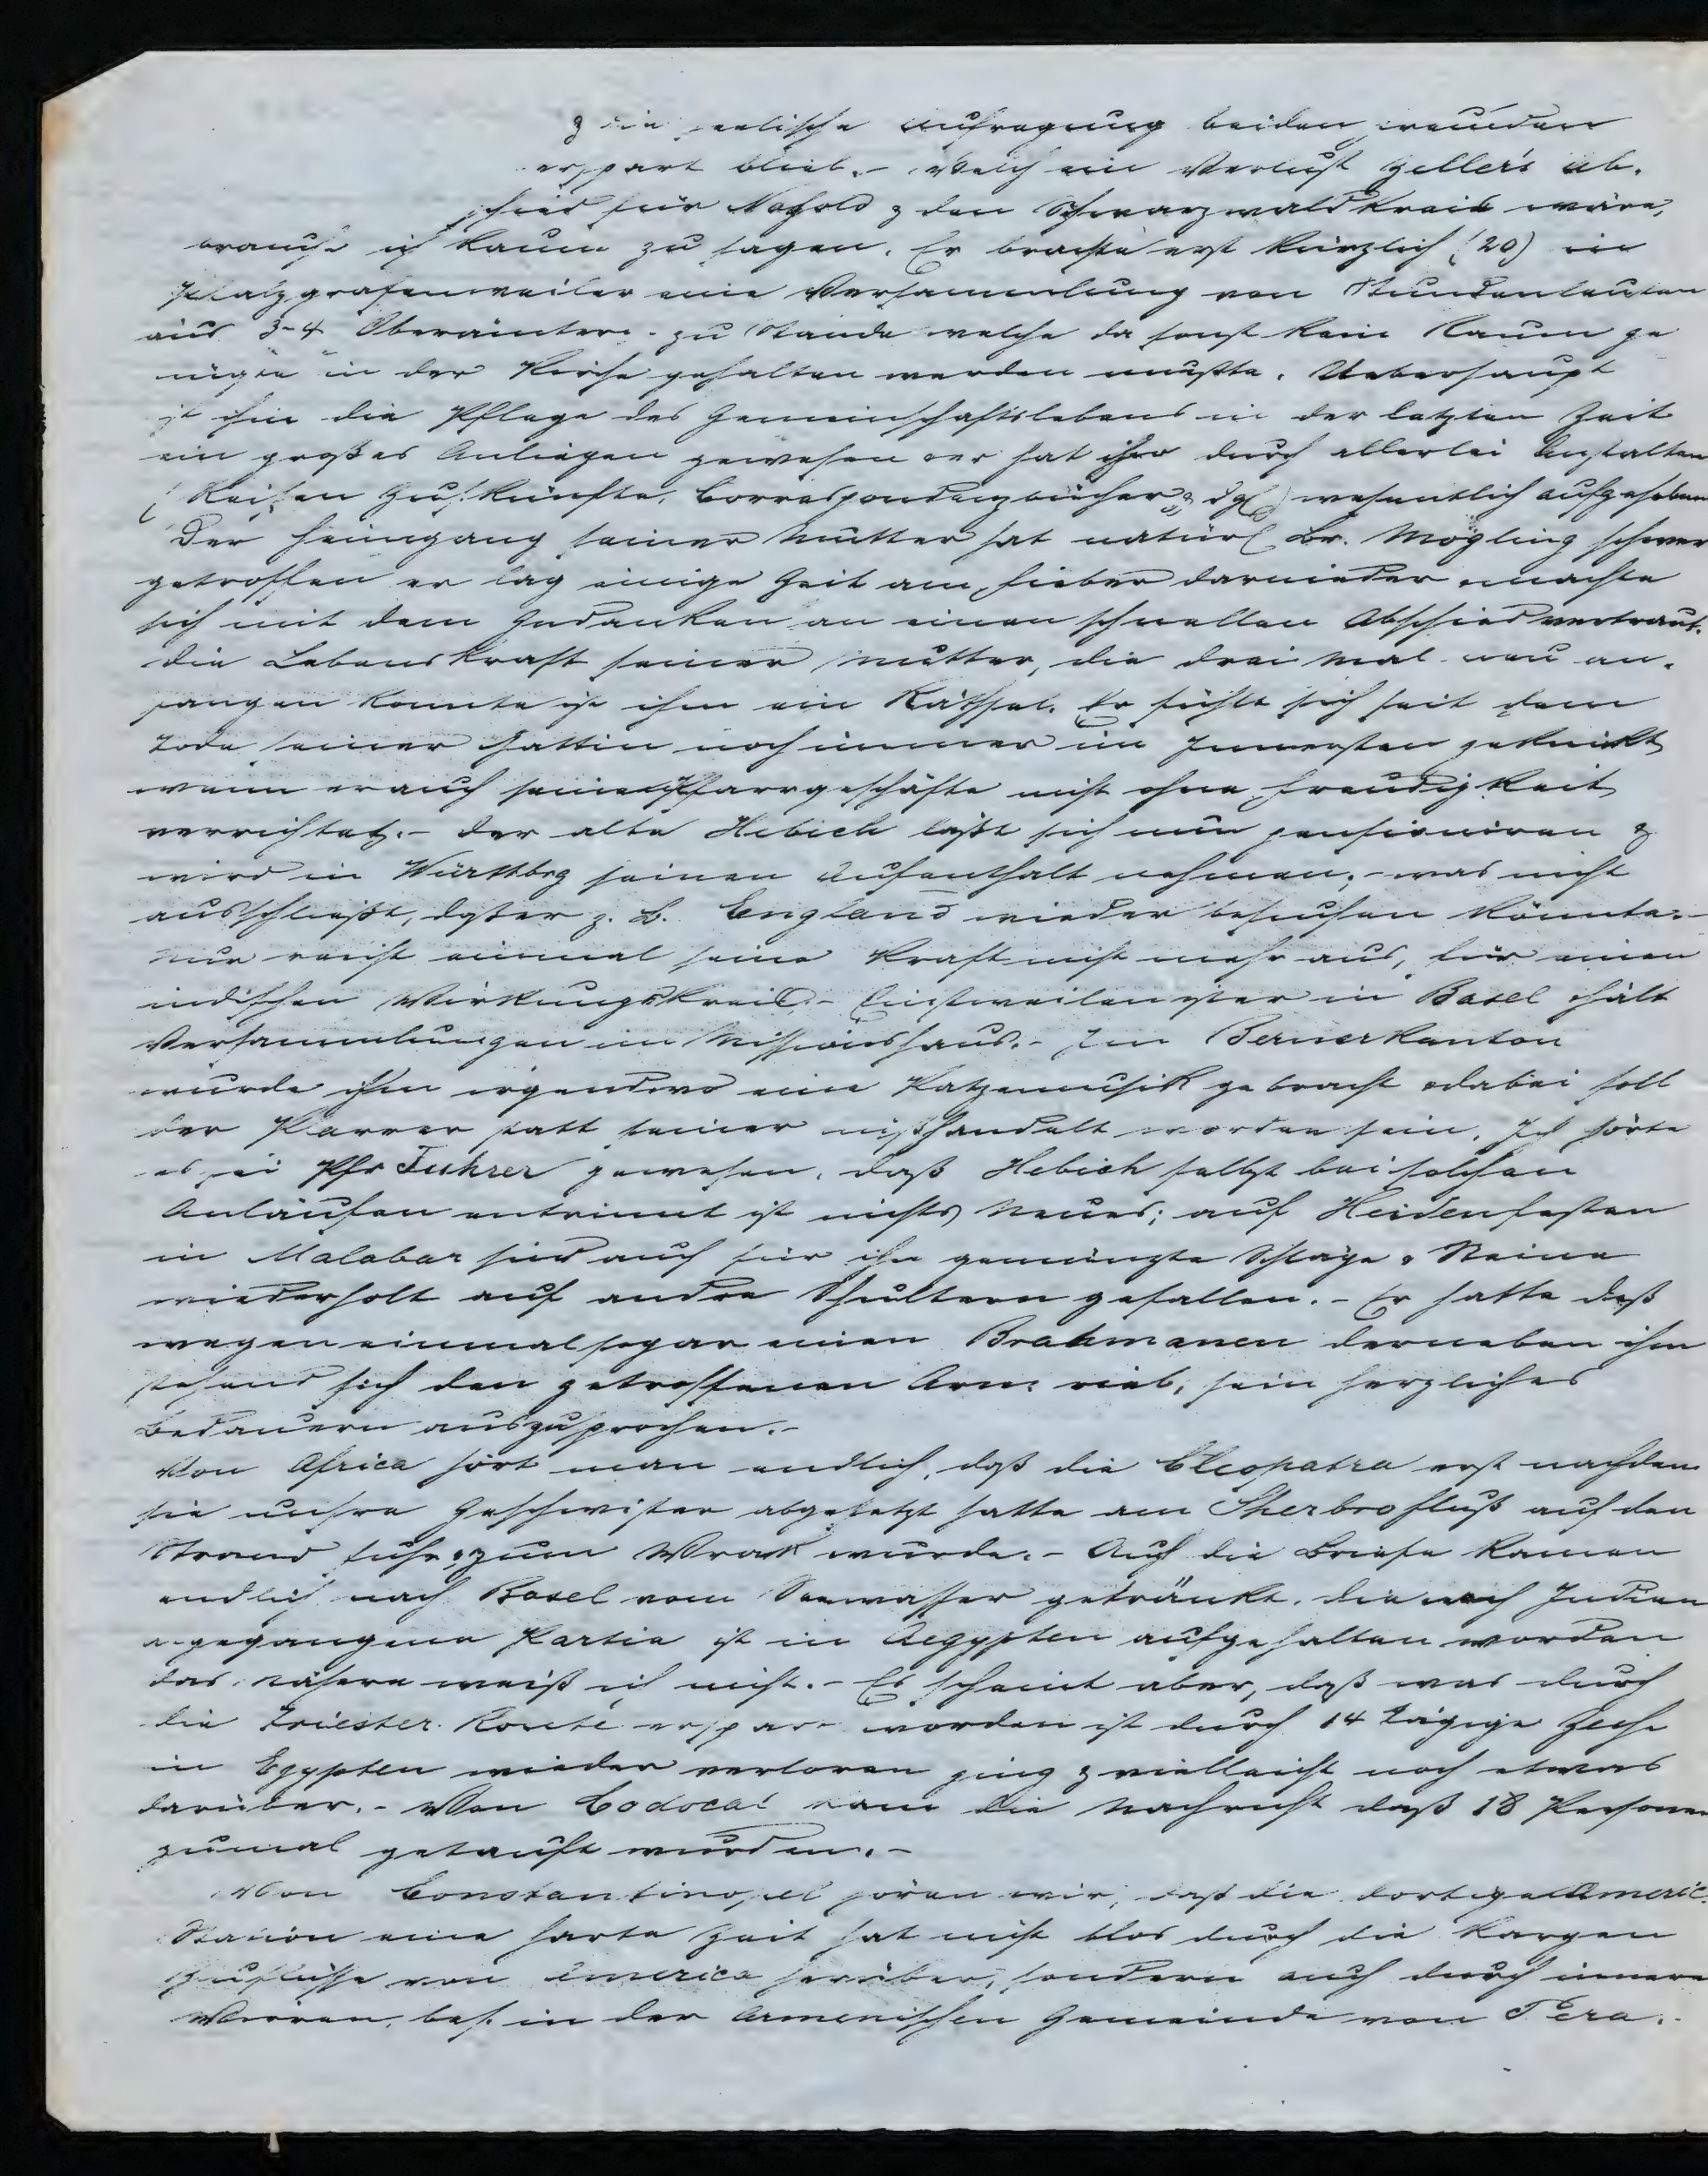 & die seelische Aufregung beiden Freunden
erspart blieb.- Welch ein Verlust Zeller's Ab-
schied für Nagold & den Schwarzwaldkreis wäre,
brauche ich kaum zu sagen. Er brachte erst kürzlich (20) in
Pfalzgrafenweiler eine Versammlung von Stundenleuten
aus 3-4 Oberämtern zu Stande welche da sonst kein Raum ge
nügte in der Kirche gehalten werden mußte. Ueberhaupt
ist ihm die Pflege des Gemeinschaftslebens in der letzten Zeit
ein großes Anliegen gewesen & er hat ihm durch allerlei Anstalten
(Reisen Zus.künfte, Correspondenzbücher & dgl) wesentlich aufgeholfen
Der Heimgang seiner Mutter hat natürl Br. Mögling schwer
getroffen er lag einige Zeit am Fieber darnieder & machte
sich mit dem Gedanken an einen schnellen Abschied vertraut.
die Lebenskraft seiner Mutter, die drei Mal neu an-
fangen konnte ist ihm ein Räthsel. Er fühlt sich seit dem
Tode seiner Gattin noch immer im Innersten geknickt
wenn er auch seine Pfarrgeschäfte nicht ohne Freudigkeit
verrichtet.- Der alte Hebich läßt sich nun pensioniren &
wird in Württbrg seinen Aufenthalt nehmen,- was nicht
ausschließt, daß er z. B. England wieder besuchen könnte.-
Nur reicht einmal seine Kraft nicht mehr aus, für einen
indischen Wirkungskreis.- Einstweilen ist er in Basel & hält
Versammlungen im Missionshaus.- Im Bernerkanton
wurde ihm irgendwo eine Katzenmusik gebracht & dabei soll
der Pfarrer statt seiner mißhandelt worden sein. Ich hörte
es sei Pfr Fuhrer gewesen. daß Hebich selbst bei solchen
Anläufen entrinnt ist nichts Neues; auf Heidenfesten
in Malabar sind auch für ihn gemünzte Schläge & Steine
wiederholt auf andre Schultern gefallen.- Er hatte deß
wegen einmal sogar einem Brahmanen der neben ihm
stehend sich den getroffenen Arm rieb, sein herzliches
Bedauern auszusprechen.-
Von Africa hört man endlich, daß die Cleopatra erst nachdem
sie unsre Geschwister abgesetzt hatte am Sherbrofluß auf den
Strand fuhr & zum Wrack wurde.- Auch die Briefe kamen
endlich nach Basel vom Seewasser getränkt. die nach Indien
abgegangene Partie ist in Aegypten aufgehalten worden
das Nähere weiß ich nicht.- Es scheint aber, daß was durch
die Triester Route erspart worden ist durch 14 tägige Zeche
in Egypten wieder verloren ging & vielleicht noch etwas
darüber.- Von Codacal kam die Nachricht daß 18 Personen
zumal getauft wurden.-
Von Constantinopel hören wir, daß die dortige Americ.
Station eine harte Zeit hat nicht blos durch die kargen
Zuflüsse von America herüber, sondern auch durch innere
Wirren, bes. in der Armenischen Gemeinde von Pera.-